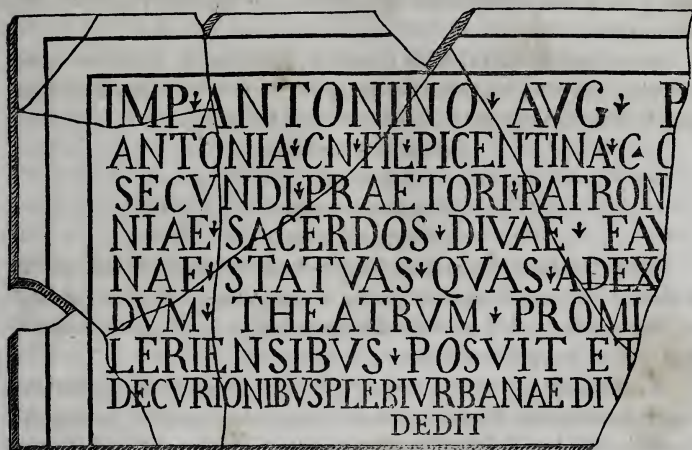 IMP ANTONINO AVG P
ANTONIA CN FIL PICENTINA C C
SECVNDI PRAETORI PATRON
NIAE SACERDOS DIVAE FAV
NAE STATVAS QVAS AD EXO
DVM THEATRVM PROMI
LERIENSIBVS POSVIT ET
DECVRIONIBVS PLEBI VRBANAE DIV
DEDIT